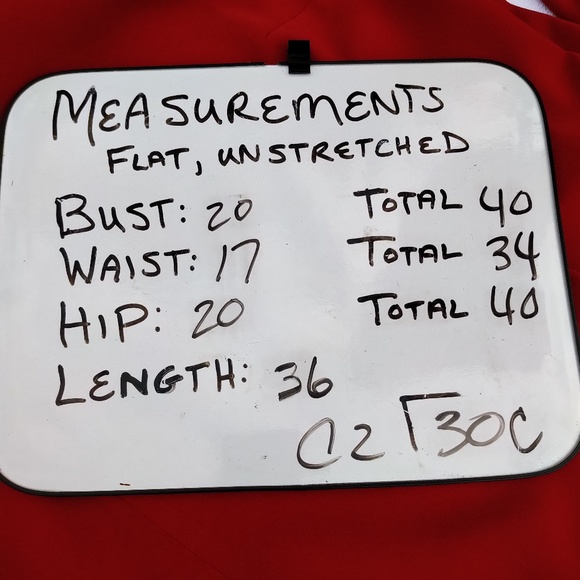 MEASUREMENTS
FLAT, UNSTRETCHED
BUST: 20 TOTAL 40
WAIST: 17 TOTAL 34
HIP: 20 TOTAL 40
LENGTH: 36
C2 30C